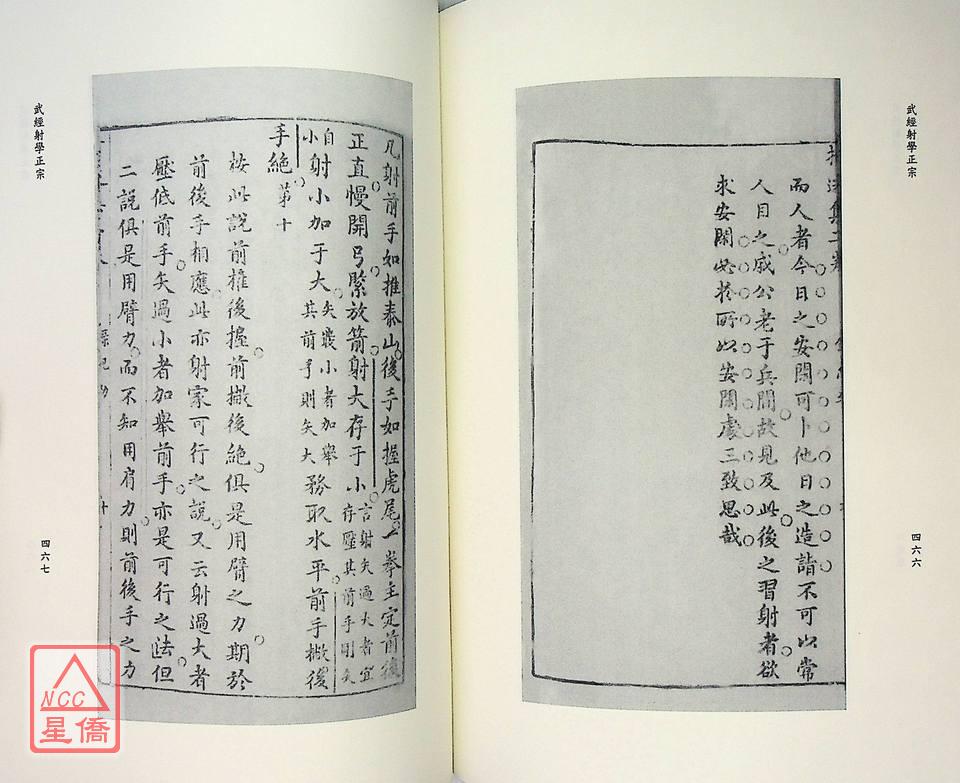 武經射學正宗
四六六
而人者今日之安閒可卜他日之造詣不可以常
人目之戚公老于兵間故見及此後之習射者欲
求安閒必於所以安閒處三致思哉
武經射學正宗
四六七
凡射前手如推泰山後手如握虎尾一拳主定前後
正直慢開弓緊放箭射大存于小言射矢過大者宜存壓其前手則矢
自小射小加于大矢發小者加舉其前手則矢大務取水平前手撇後
手絕第十
按此說前推後握前撇後絕俱是用臂之力期於
前後手相應此亦射家可行之說又云射過大者
壓低前手矢過小者加舉前手亦是可行之法但
二說俱是用臂力而不知用肩力則前後手之力
NCC
星僑